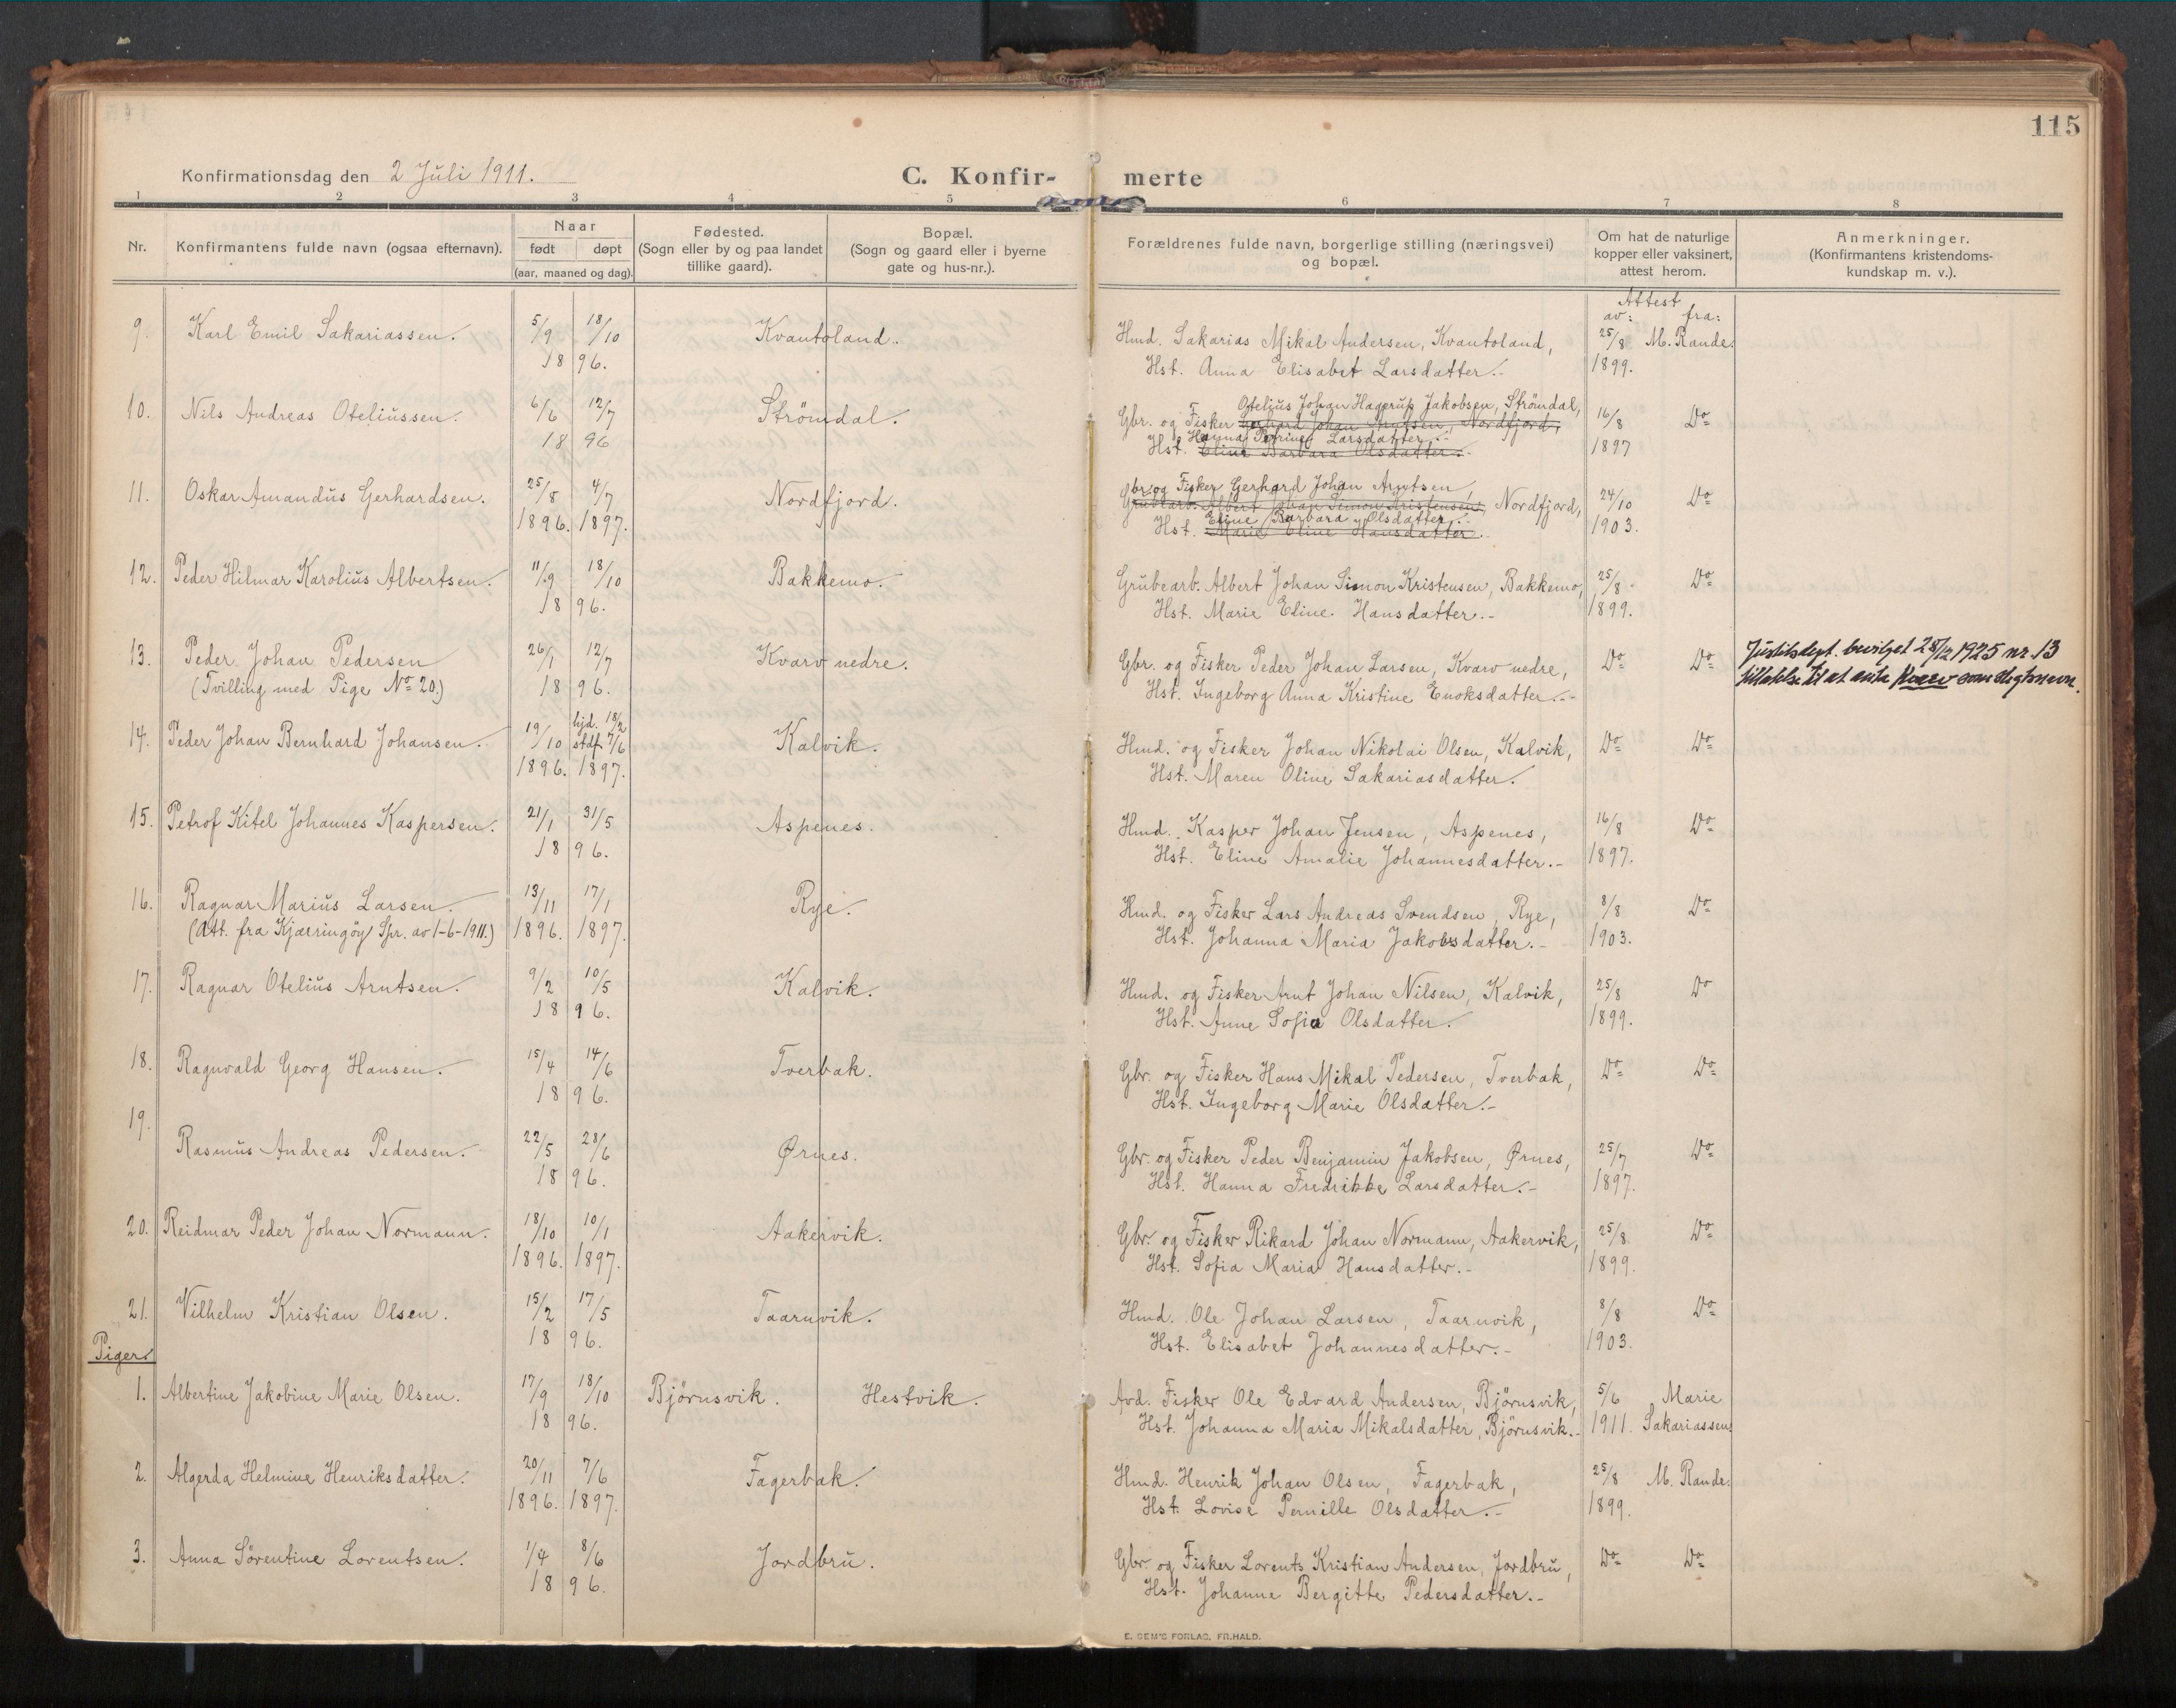 115
Konfirmationsdag den 2 Juli 1911.
C. Konfir- merte
1 2 3 4 5 6 7 8
Nr.
Konfirmantens fulde navn (ogsaa efternavn).
Naar
født døpt
(aar, maaned og dag).
Fødested.
(Sogn eller by og paa landet
tillike gaard).
Bopæl.
(Sogn og gaard eller i byerne
gate og hus-nr.).
Forældrenes fulde navn, borgerlige stilling (næringsvei)
og bopæl.
Om hat de naturlige
kopper eller vaksinert,
attest herom.
Anmerkninger.
(Konfirmantens kristendoms-
kundskap m. v.).
Attest
av: fra:
9. Karl Emil Sakariassen. 5/9 18/10 Kvantoland. Hmd. Sakarias Mikal Andersen, Kvantoland, 25/8 M. Rande.
1896. Hst. Anna Elisabet Larsdatter.- 1899.
Otelius Johan Hagerup Jakobsen, Strömdal,
10. Nils Andreas Oteliussen. 6/6 12/7 Strömdal. Gbr. og Fisker Gerhard Johan Arntsen, Nordfjord, 16/8 Do
Hanna Petrine Larsdatter.-
1896 Hst. Eline Barbara Olsdatter.- 1897
br. og Fisker Gerhard Johan Arntsen,
11. Oskar Amandus Gerhardsen. 25/8 4/7 Nordfjord. Grubearb. Albert Johan Simon Kristensen, Nordfjord, 24/10 Do
Eline Barbara Olsdatter.-
1896. 1897. Hst. Marie Eline Hansdatter. 1903.
12. Peder Hilmar Karolius Albertsen. 11/9 18/10 Bakkemo. Grubearb. Albert Johan Simon Kristensen, Bakkemo, 25/8 Do
1896. Hst. Marie Eline Hansdatter.- 1899.
13. Peder Johan Pedersen 26/1 12/7 Kvarv nedre. Gbr. og Fisker Peder Johan Larsen, Kvarv nedre, Do Do Justitsdept. bevilget 28/12 1925 nr. 13
(Tvilling med Pige No 20.) 1896. Hst. Ingeborg Anna Kristine Enoksdatter.- tillatelse til at anta Kvarv som slegtsnavn.
14. Peder Johan Bernhard Johansen. 19/10 hjd. 18/2 stdf. 7/6 Kalvik. Hmd. og Fisker Johan Nikolai Olsen, Kalvik, Do Do
1896. 1897. Hst. Maren Oline Sakariasdatter.
15. Petrof Kitel Johannes Kaspersen. 21/1 31/5 Aspenes. Hmd. Kasper Johan Jensen, Aspenes, 16/8 Do
1896. Hst. Eline Amalie Johannesdatter.- 1897.
16. Ragnar Marius Larsen. 13/11 17/1 Rye. Hmd. og Fisker Lars Andreas Svendsen, Rye, 8/8 Do
(Att. fra Kjærringöy Spr. av 1-6-1911.) 1896. 1897. Hst. Johanna Maria Jakobsdatter.- 1903.
17. Ragnar Otelius Arntsen. 9/2 10/5 Kalvik. Hmd. og Fisker Arnt Johan Nilsen, Kalvik, 25/8 Do
1896. Hst. Anne Sofia Olsdatter. 1899.
18. Ragnvald Georg Hansen. 15/4 14/6 Tverbak. Gbr. og Fisker Hans Mikal Pedersen, Tverbak, Do Do
1896. Hst. Ingeborg Marie Olsdatter.-
19. Rasmus Andreas Pedersen. 22/5 28/6 Ørnes. Gbr. og Fisker Peder Benjamin Jakobsen, Ørnes, 25/7 Do
1896. Hst. Hanna Fredrikke Larsdatter.- 1897.
20. Reidmar Peder Johan Normann. 18/10 10/1 Aakervik. Gbr. og Fisker Rikard Johan Normann, Aakervik, 25/8 Do
1896. 1897. Hst. Sofia Maria Hansdatter.- 1899.
21. Vilhelm Kristian Olsen. 15/2 17/5 Taarnvik. Hmd. Ole Johan Larsen, Taarnvik, 8/8 Do
1896. Hst. Elisabet Johannesdatter.- 1903.
Piger.
1. Albertine Jakobine Marie Olsen. 17/9 18/10 Björnsvik. Hestvik. Avd. Fisker Ole Edvard Andersen, Björnsvik, 5/6 Marie
1896. Hst. Johanna Maria Mikalsdatter, Björnsvik.- 1911. Sakariassen.
2. Algerda Helmine Henriksdatter. 20/11 7/6 Fagerbak. Hmd. Henrik Johan Olsen, Fagerbak, 25/8 M. Rande.
1896. 1897. Hst. Lovise Pernille Olsdatter.- 1899.
3. Anna Sörentine Lorentsen. 1/4 8/6 Jordbru. Gbr. og Fisker Lorents Kristian Andersen, Jordbru, Do Do
1896. Hst. Johanna Bergitte Pedersdatter.-
E. SEM'S FORLAG, FR.HALD.